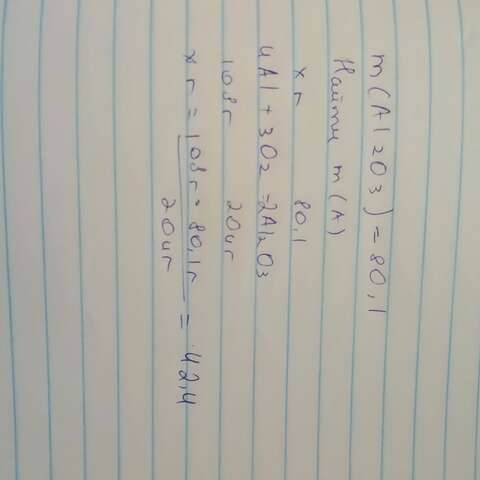 m(Al2O3) = 80,1
Найти m(A)
x г 80,1
4Al + 3O2 = 2Al2O3
108г 204г
x г = 108г = 80,1г = 42,4
204г